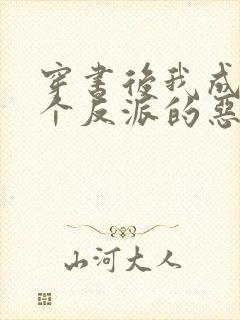 穿書後我成
个反派的惡
山河大人